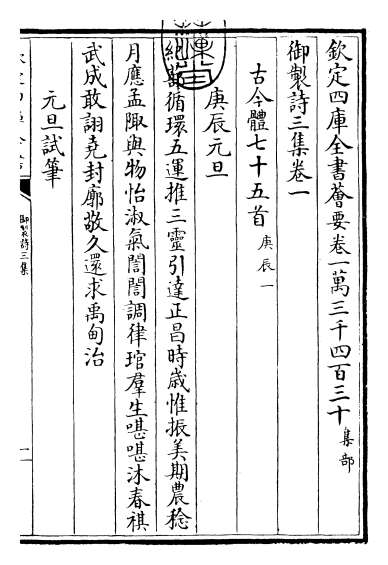 欽定四庫全書薈要卷一萬三千四百三十 集部
御製詩三集卷一
古今體七十五首 庚辰一
庚辰元旦
紀循環五運推三靈引達正昌時歲惟振美期農稔
月應孟陬與物怡淑氣誾誾調律琯羣生啿啿沐春祺
武成敢詡堯封廓敬久還求禹甸治
元旦試筆
御製詩三集
一